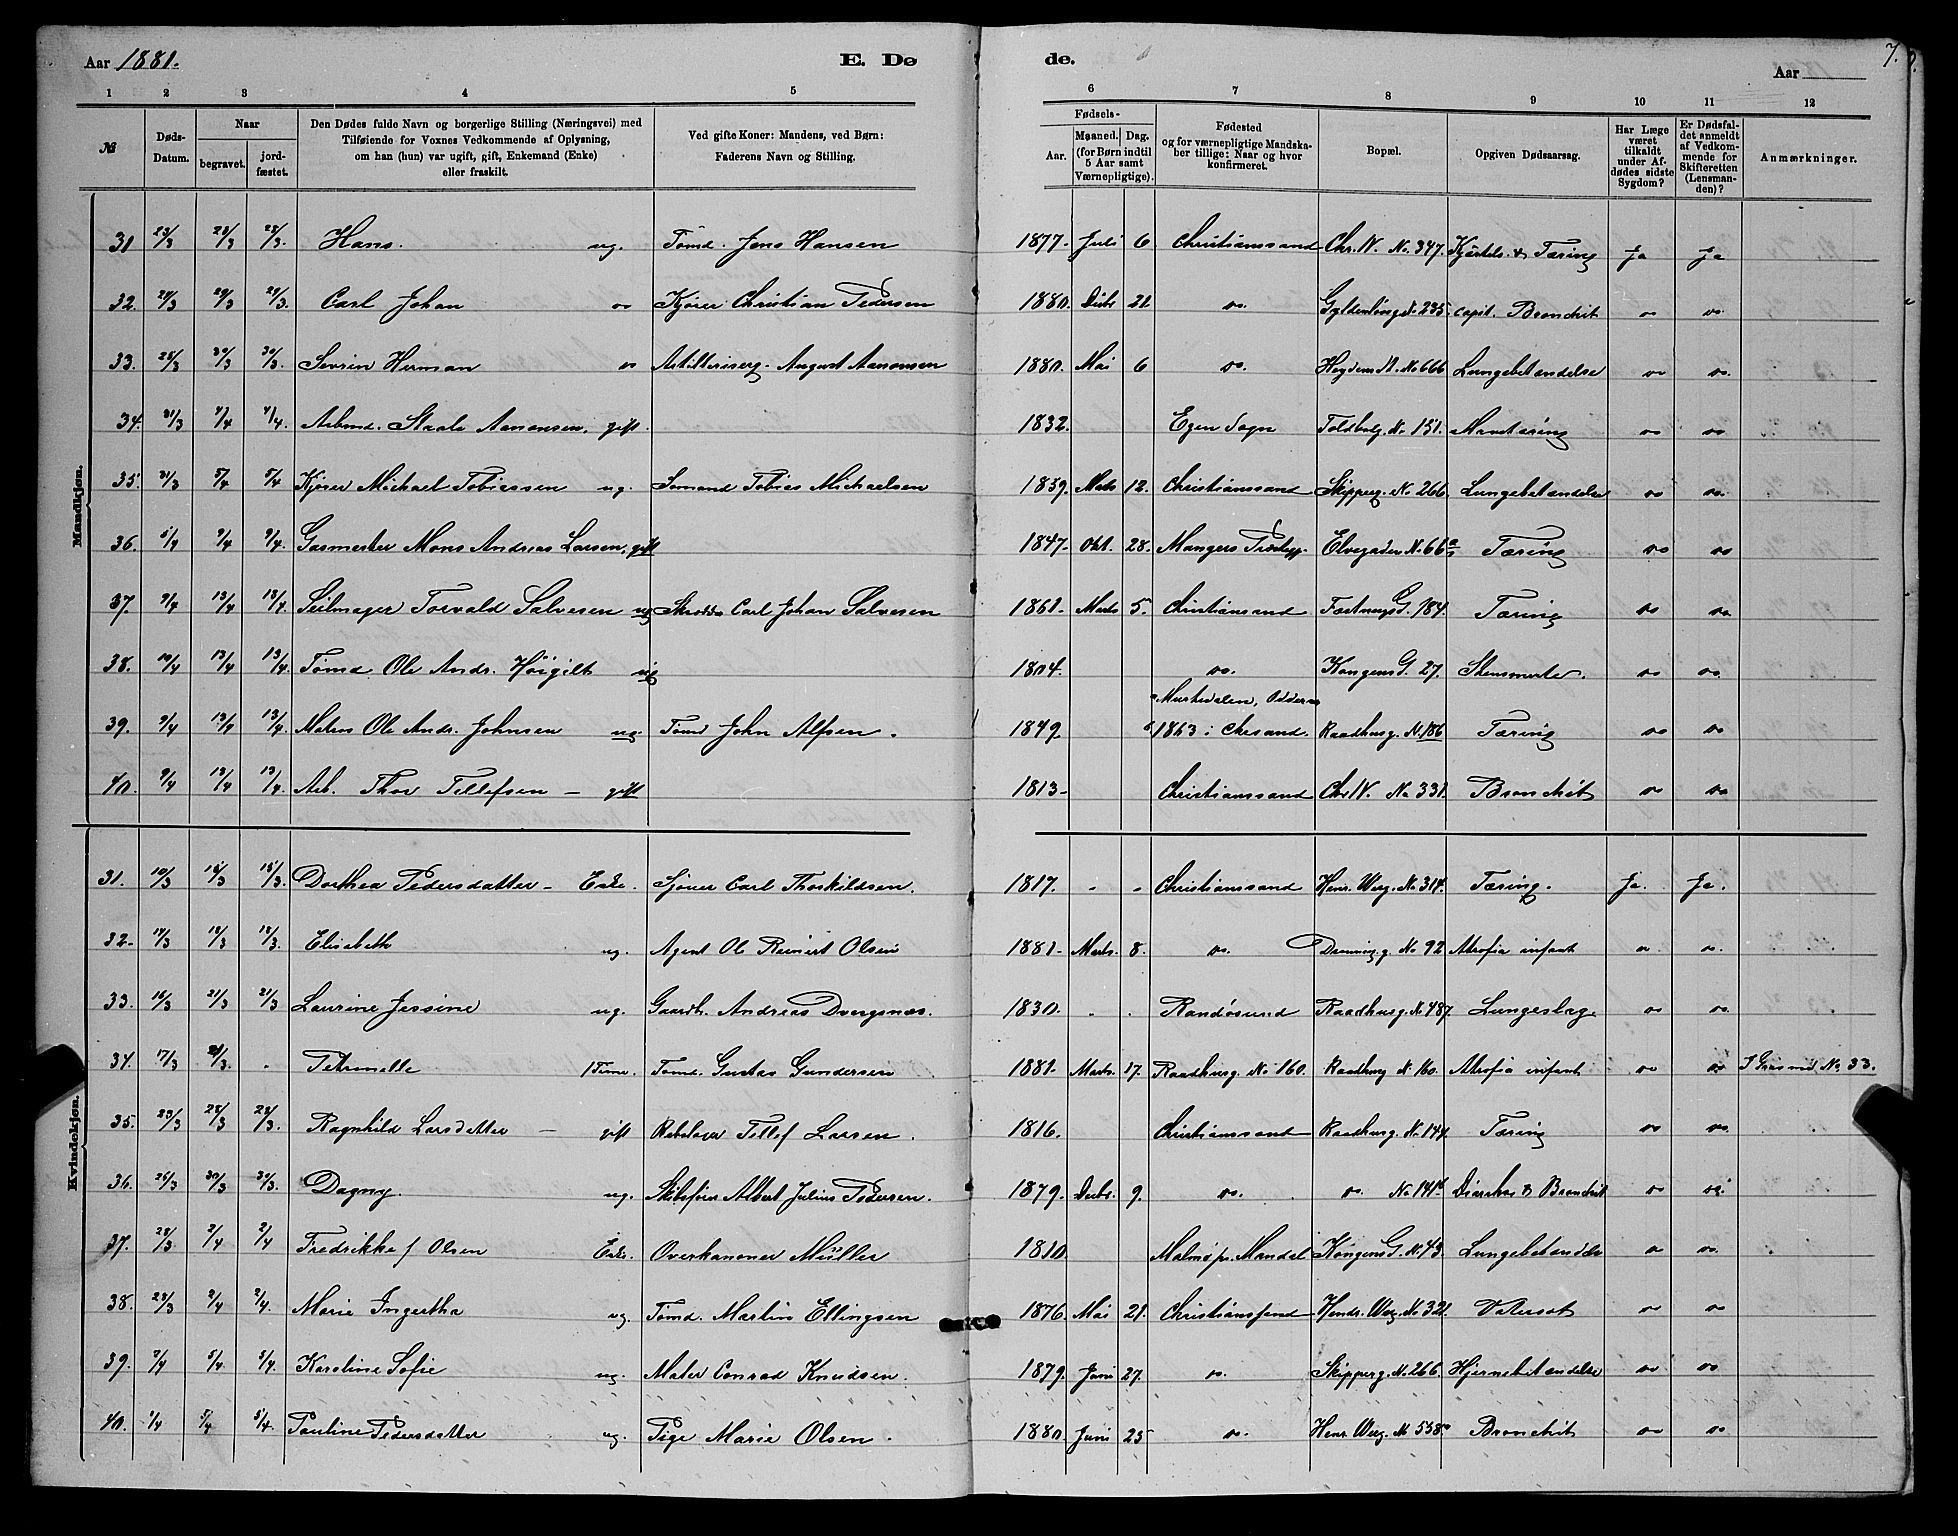 Aar 1881. E. Dø de. Aar 7.
1 2 3 4 5 6 7 8 9 10 11 12
№ Døds-Datum. Naar begravet. jordfæstet. Den Dødes fulde Navn og borgerlige Stilling (Næringsvei) med Tilføiende for Voxnes Vedkommende af Oplysning, om han (hun) var ugift, gift, Enkemand (Enke) eller fraskilt. Ved gifte Koner: Mandens, ved Børn: Faderens Navn og Stilling. Fødsels- Aar. Maaned. Dag. (for Børn indtil 5 Aar samt Værnepligtige). Fødested og for værnepligtige Mandskaber tillige: Naar og hvor konfirmeret. Bopæl. Opgiven Dødsaarsag. Har Læge været tilkaldt under Afdødes sidste Sygdom? Er Dødsfaldet anmeldt af Vedkommende for Skifteretten (Lensmanden)? Anmærkninger.
Mandkjøn.
31 23/3 28/3 28/3. Hans. ug. Tømd. Jens Hansen 1877. Juli 6 Christianssand Chr. IV. No. 347. Kjertels. & Tæring Ja Ja
32. 24/3 29/3 29/3. Carl Johan " Kjører Christian Pedersen 1880. Decbr 21. " No. 235. capil. Bronchit " "
33. 25/3 30/3 30/3. Sevrin Herman " Artilleriserg. August Aanonsen 1880. Mai 6 " No 666 Lungebetændelse " "
34. 31/3 4/4 4/4. Arbmd. Staale Aanonsen. gift. 1832. Egen Sogn Toldbodg. No. 151. Mavetæring " "
35. 31/3 5/4 5/4 Kjører Michael Tobiassen ug. Sømand Tobias Michaelsen 1839. Marts 12. Christianssand Skipperg. No. 266. Lungebetændelse " "
36. 5/4 9/4 9/4. Gasmester Mons Andreas Larsen. gift 1847. Okt. 28. Mangers Elvegaden No. 66 Tæring " "
37. 9/4 13/4 13/4. Seilmager Torvald Salvesen ug Carl Johan Salvesen 1861. Marts 5. Christiansand Fæstnings G. 184. Tæring " "
38. 10/4 13/4 13/4. Tømd. Ole Andr. Høigilt ug 1804. " Kongens G. 27. " "
39. 9/4 13/4 13/4 Matros Ole Andr. Johnsen ug. Tømd John Alfsen. 1849. Oddernes 1863 i Chrsand. Raadhusg. No. 186 Tæring " "
40. 9/4 13/4 13/4. Arb. Thor Tellefsen — gift 1813. Christianssand Chr. IV. No. 331. Bronchit " "
Kvindekjøn.
31. 10/3 15/3 15/3. Dorthea Pedersdatter — Enke. Carl Thorkildsen. 1817. - - Christianssand Henr. Werg. No. 314. Tæring. Ja. Ja.
32. 14/3 18/3 18/3. Elisabeth ug. Agent Ole Reinert Olsen 1881. Marts. 8. " Dronning. g. No 92 Atrofia infant " "
33. 16/3 21/3 21/3 Laurine Jessine ug. Gaardb. Andreas Dvergsnæs. 1830. - - Randøsund Raadhusg. No. 487. Lungeslag " "
34. 17/3 21/3. - Petronelle 1 Time. Tømd. Gustav Gundersen 1881. Marts. 17. Raadhusg. No. 160. Raadhusg No 160. Atrofia infant " " No 33.
35. 23/3 28/3 28/3. Ragnhild Larsdatter — gift Rebslager Tellef Larsen. 1816. Christianssand Raadhusg. No. 144. Tæring " "
36. 26/3 30/3 30/3. Dagny. ug. Albert Julius Pedersen. 1879. Decbr. 9. " " No. 141 Diarrhoe & Bronchit " "
37. 28/3. 2/4 2/4 Fredrikke f Olsen Enke. Overkanoner Müller 1810. Malmø pr. Mandal Kongens G. No. 43. Lungebetændelse " "
38. 28/3 2/4 2/4. Marie Ingertha ug. Tømd. Martin Ellingsen 1876. Mai 21. Christianssand Hendr. Werg. No 321. Vatersot " "
39. 2/4 5/4 5/4. Karoline Sofie ug. Maler Conrad Knudsen. 1879. Juni 27. " Skipperg. No. 266. Hjernebetændelse " "
40. 1/4 5/4 5/4. Pauline Pedersdatter ug. Pige Marie Olsen. 1880. Juni 25 " Henr. Werg. No 558 Bronchit " "